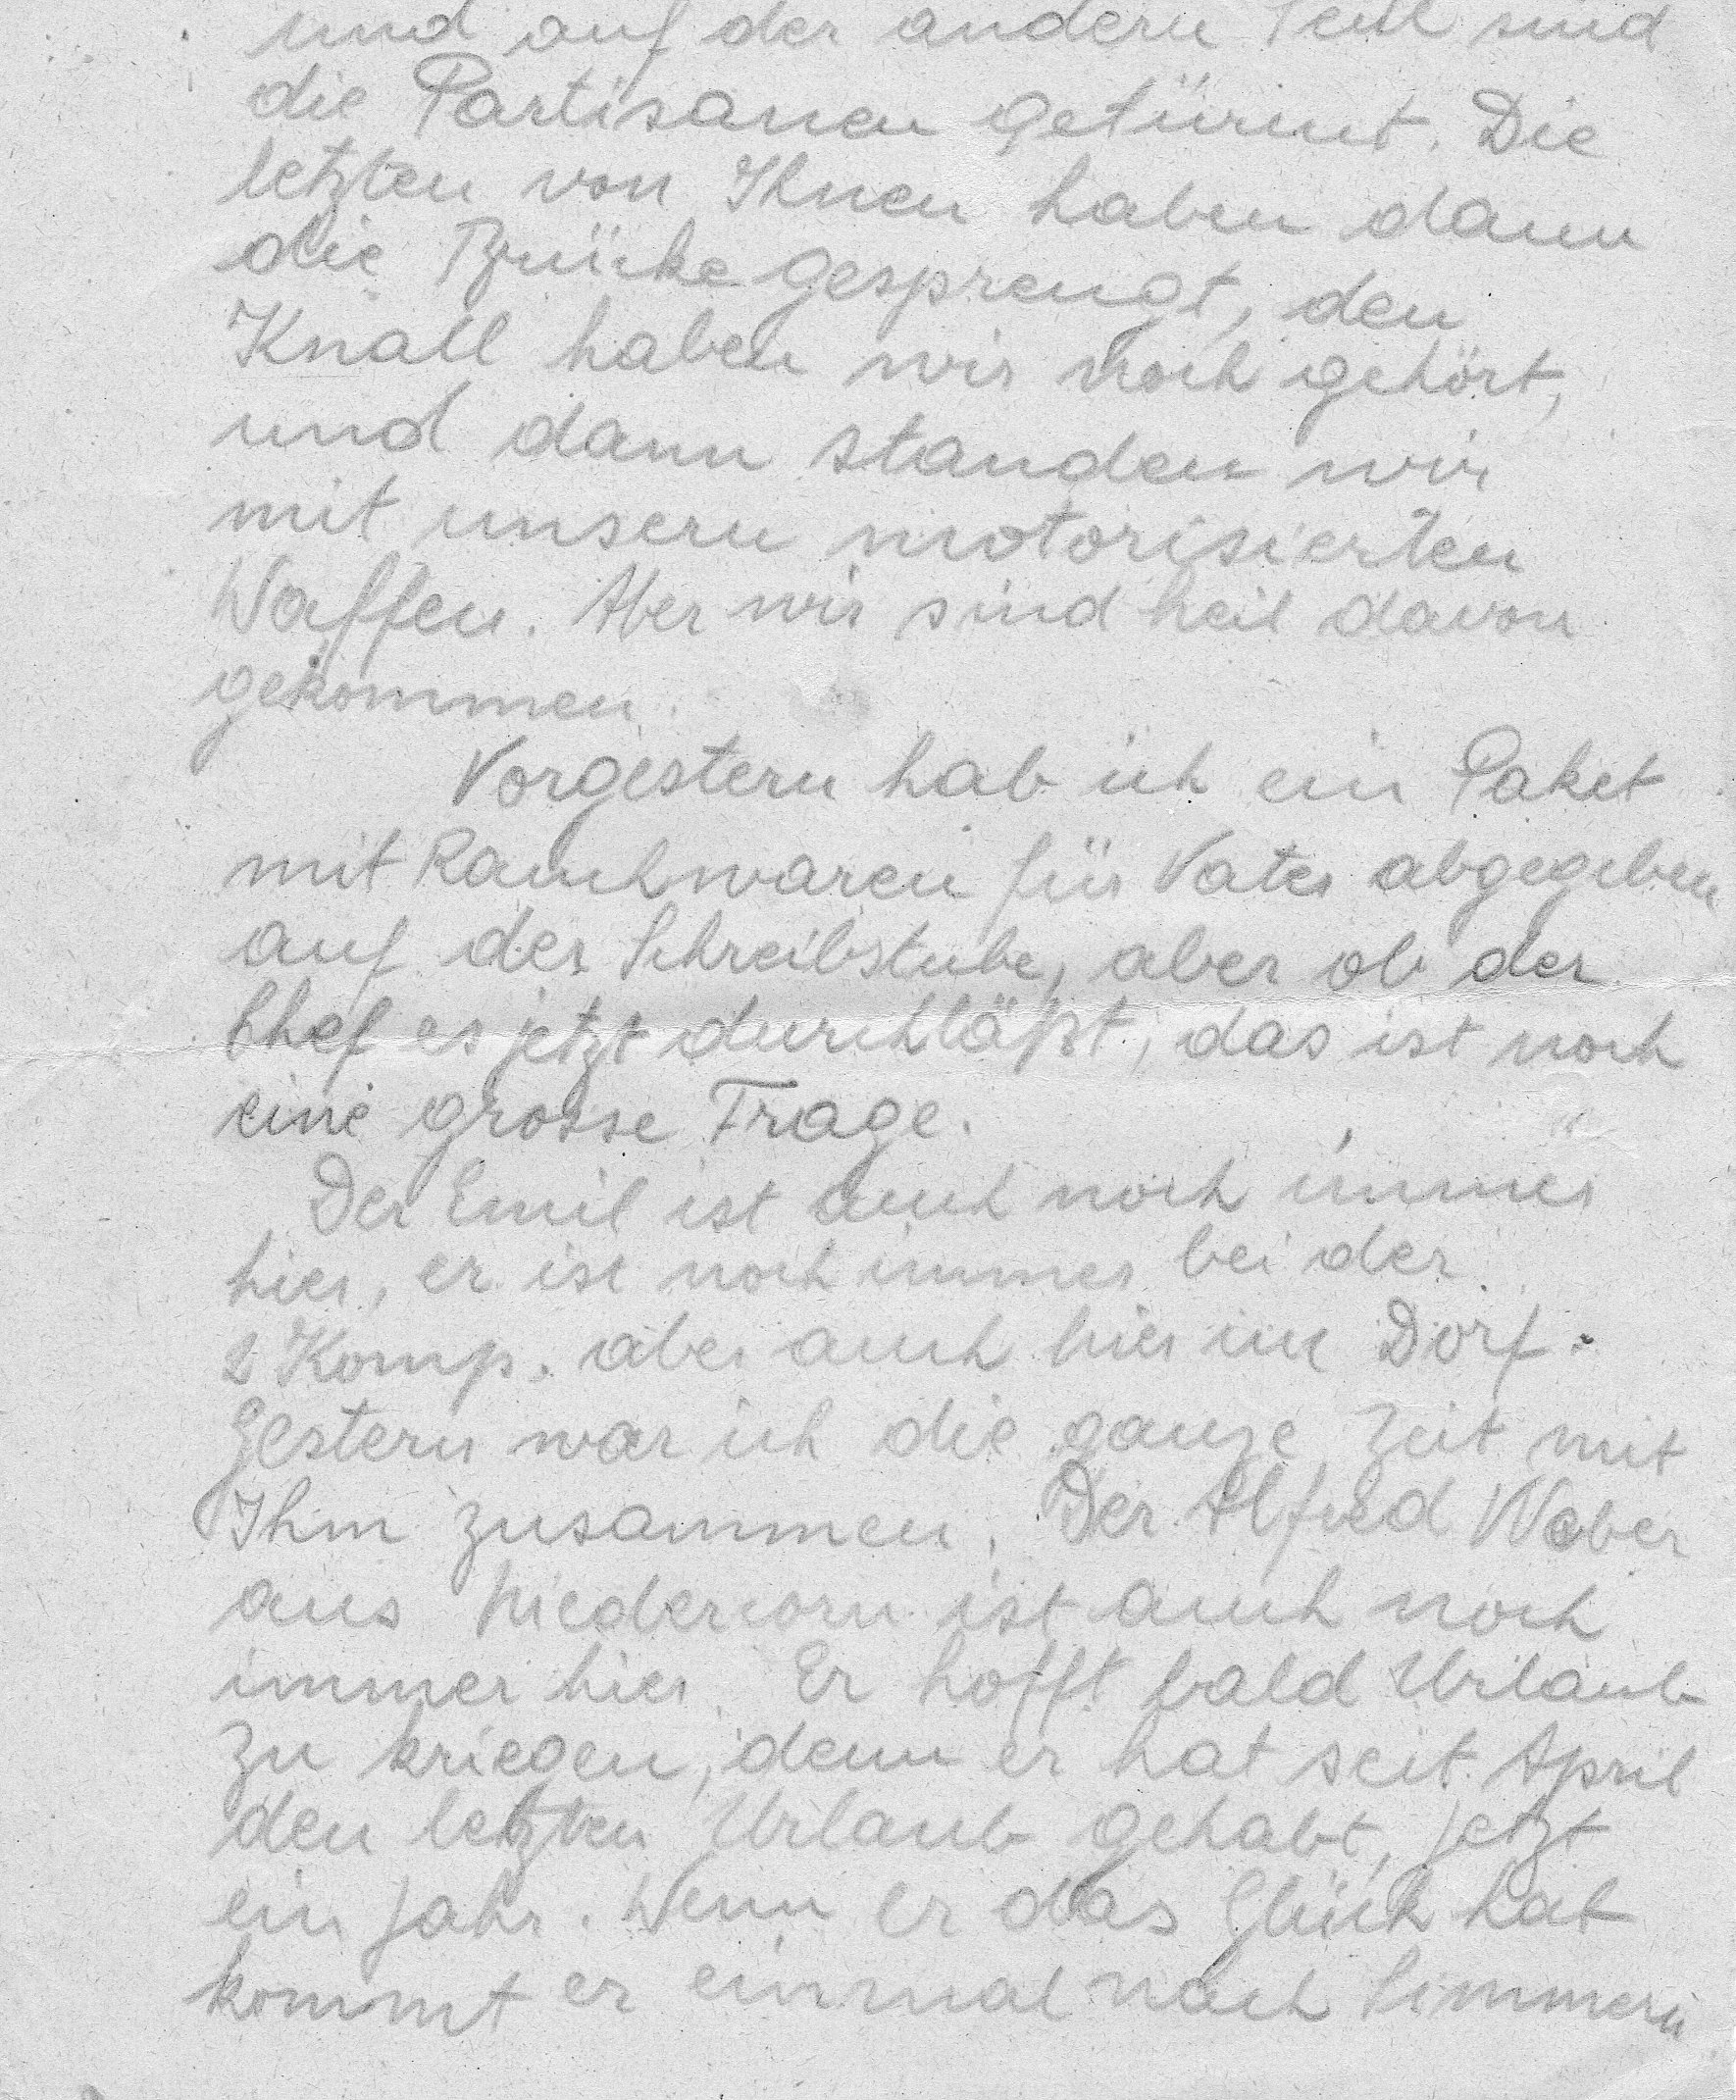 und auf der andern Seite sind
die Partisanen getürmt. Die
letzten von Ihnen haben dann
die Brücke gesprengt, den
Knall haben wir noch gehört,
und dann standen wir
mit unsern motorisierten
Waffen. Aber wir sind heil davon
gekommen.
Vorgestern hab ich ein Paket
mit Rauchwaren für Vater abgegeben
auf der Schreibstube, aber ob der
Chef es jetzt durchläßt, das ist noch
eine grosse Frage.
Der Emil ist auch noch immer
hier, er ist noch immer bei der
2 Komp. aber auch hier im Dorf.
Gestern war ich die ganze Zeit mit
Ihm zusammen. Der Alfred Weber
aus Niedercorn ist auch noch
immer hier. Er hofft bald Urlaub
zu kriegen, denn er hat seit April
den letzten Urlaub gehabt, jetzt
ein Jahr. Wenn er das Glück hat
kommt er einmal nach Simmern